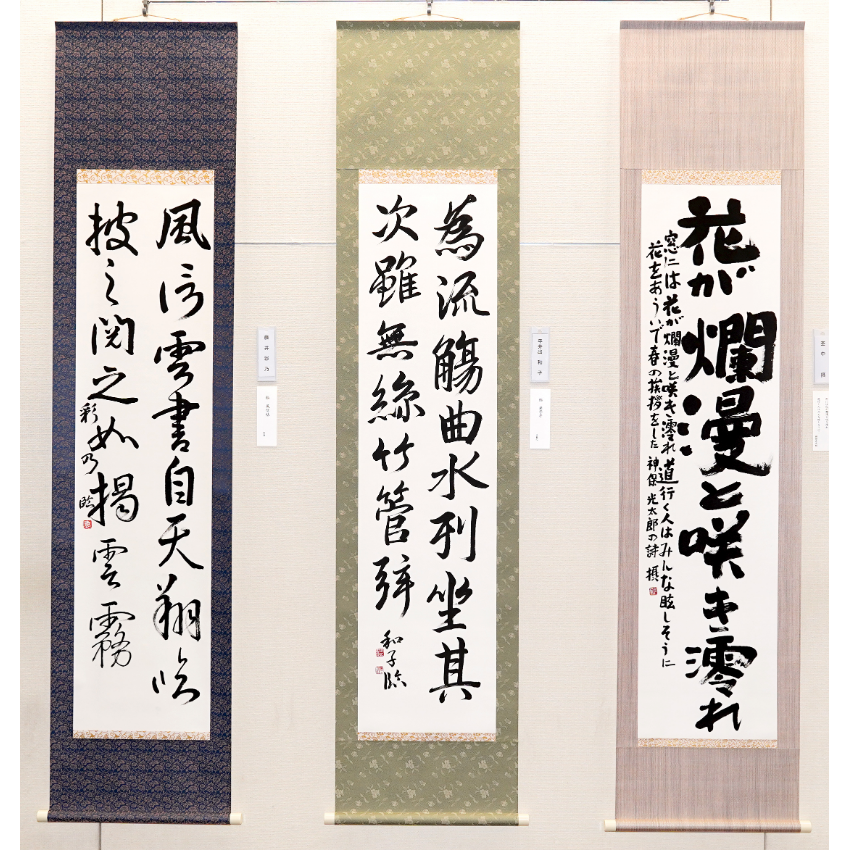 風信雲書自天翔臨
披之閲之如揭雲霧
彩乃臨
藤井彩乃
為流觴曲水列坐其
次雖無絲竹管弦
和子臨
花が爛漫と咲き澪れ
窓には花が爛漫と咲き澪れ道行く人はみんな眩しそうに
花をあういで春の挨拶をした 神保光太郎の詩 摂